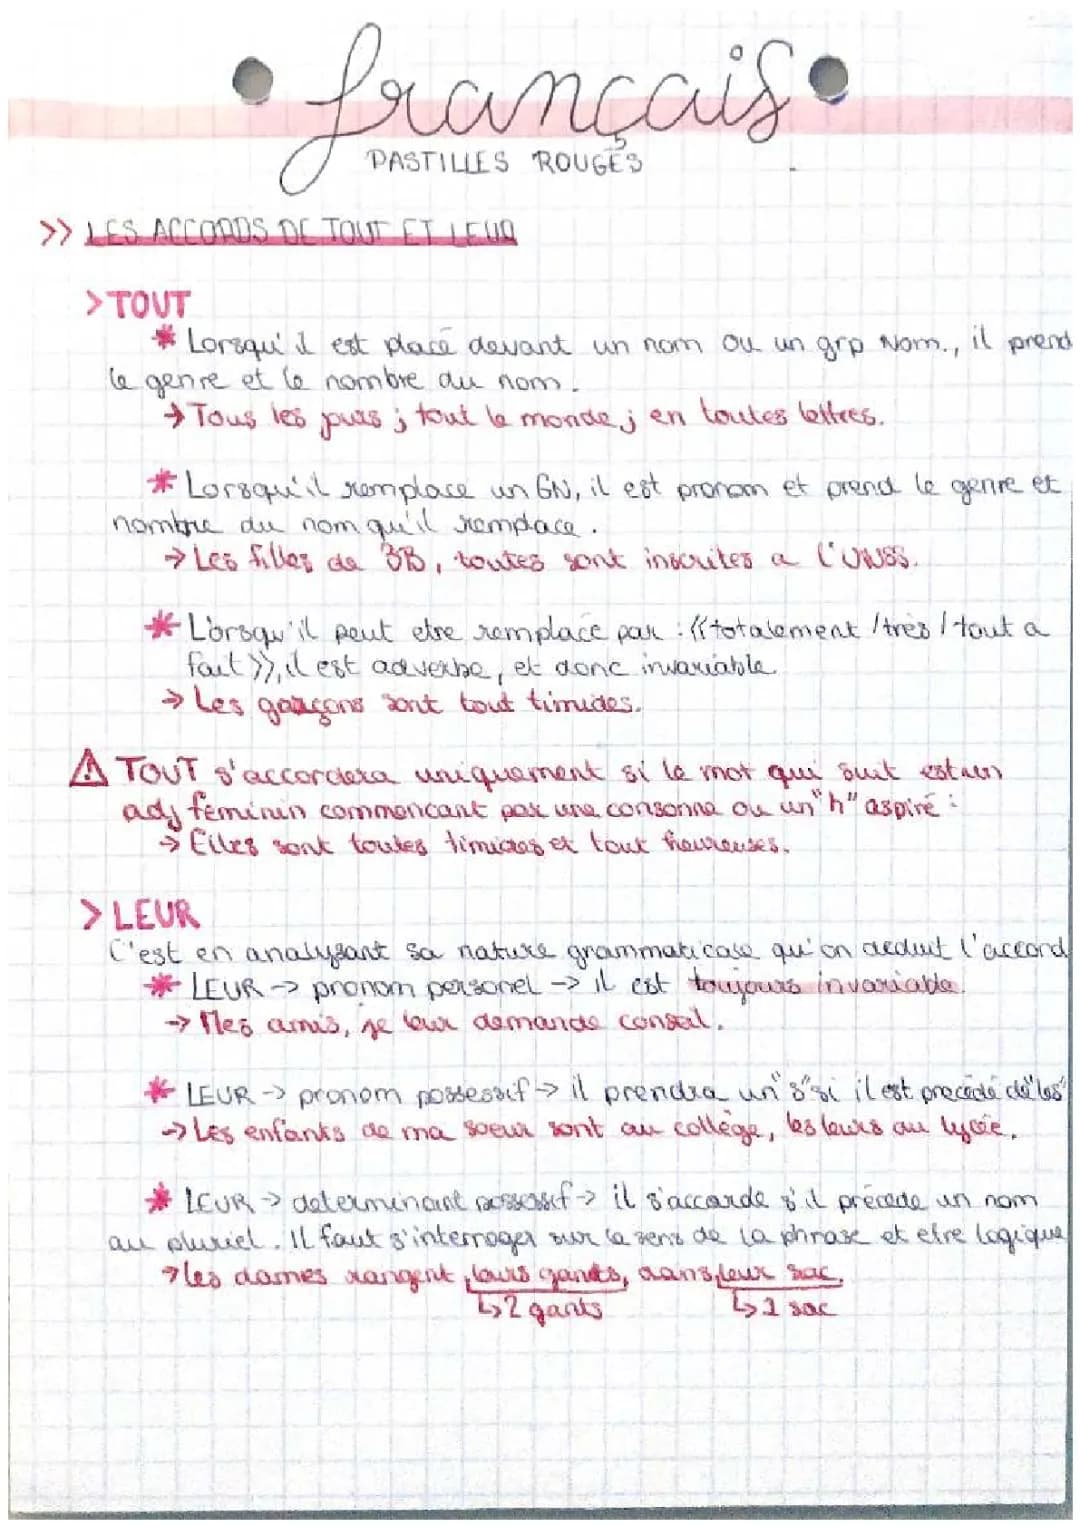 français
PASTILLES ROUGES
>> LES ACCORDS DE TOUT ET LEUR
> TOUT
* Lorsqu'il est placé devant un nom ou un grp Nom., il prend
le genre et le nombre du nom.
→ Tous les jours ; tout le monde ; en toutes lettres.
* Lorsqu'il remplace un GN, il est pronom et prend le genre et
nombre du nom qu'il remplace.
→ Les filles de 3B, toutes sont inscrites a l'UNSS.
* Lorsqu'il peut etre remplacé par : «totalement / très / tout a
fait», il est adverbe, et donc invariable.
→ Les garçons sont tout timides.
⚠ TOUT s'accordera uniquement si le mot qui suit est un
adj féminin commencant par une consonne ou un "h" aspiré :
→ Elles sont toutes timides et tout heureuses.
> LEUR
C'est en analysant sa nature grammaticale qu'on deduit l'accord
* LEUR → pronom personel → il est toujours invariable.
→ Mes amis, je leur demande conseil.
* LEUR → pronom possessif → il prendra un "s" si il est precédé de "les"
→ Les enfants de ma soeur sont au collège, les leurs au lycée.
* LEUR → determinant possessif → il s'accorde s'il précede un nom
au pluriel. Il faut s'interroger sur le sens de la phrase et etre logique
→ les dames rangent leurs gants, dans leur sac.
↳ 2 gants ↳ 1 sac